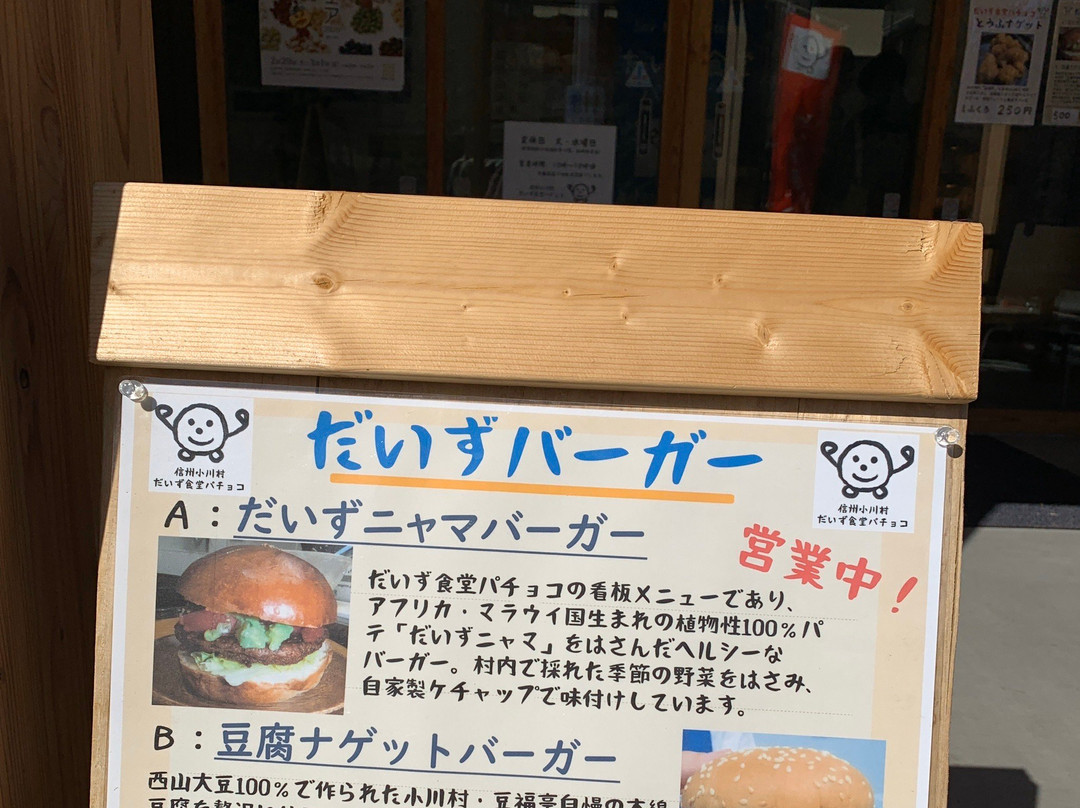 だいず食堂パチョコ
とうふナゲット
250円
500
だいずバーガー
信州小川村
だいず食堂パチョコ
信州小川村
だいず食堂パチョコ
A:だいずニャマバーガー
営業中!
だいず食堂パチョコの看板メニューであり、
アフリカ・マラウイ国生まれの植物性100%パ
テ「だいずニャマ」をはさんだヘルシーな
バーガー。村内で採れた季節の野菜をはさみ、
自家製ケチャップで味付けしています。
B:豆腐ナゲットバーガー
西山大豆100%で作られた小川村・豆福亭自慢の木綿
豆腐を贅沢に